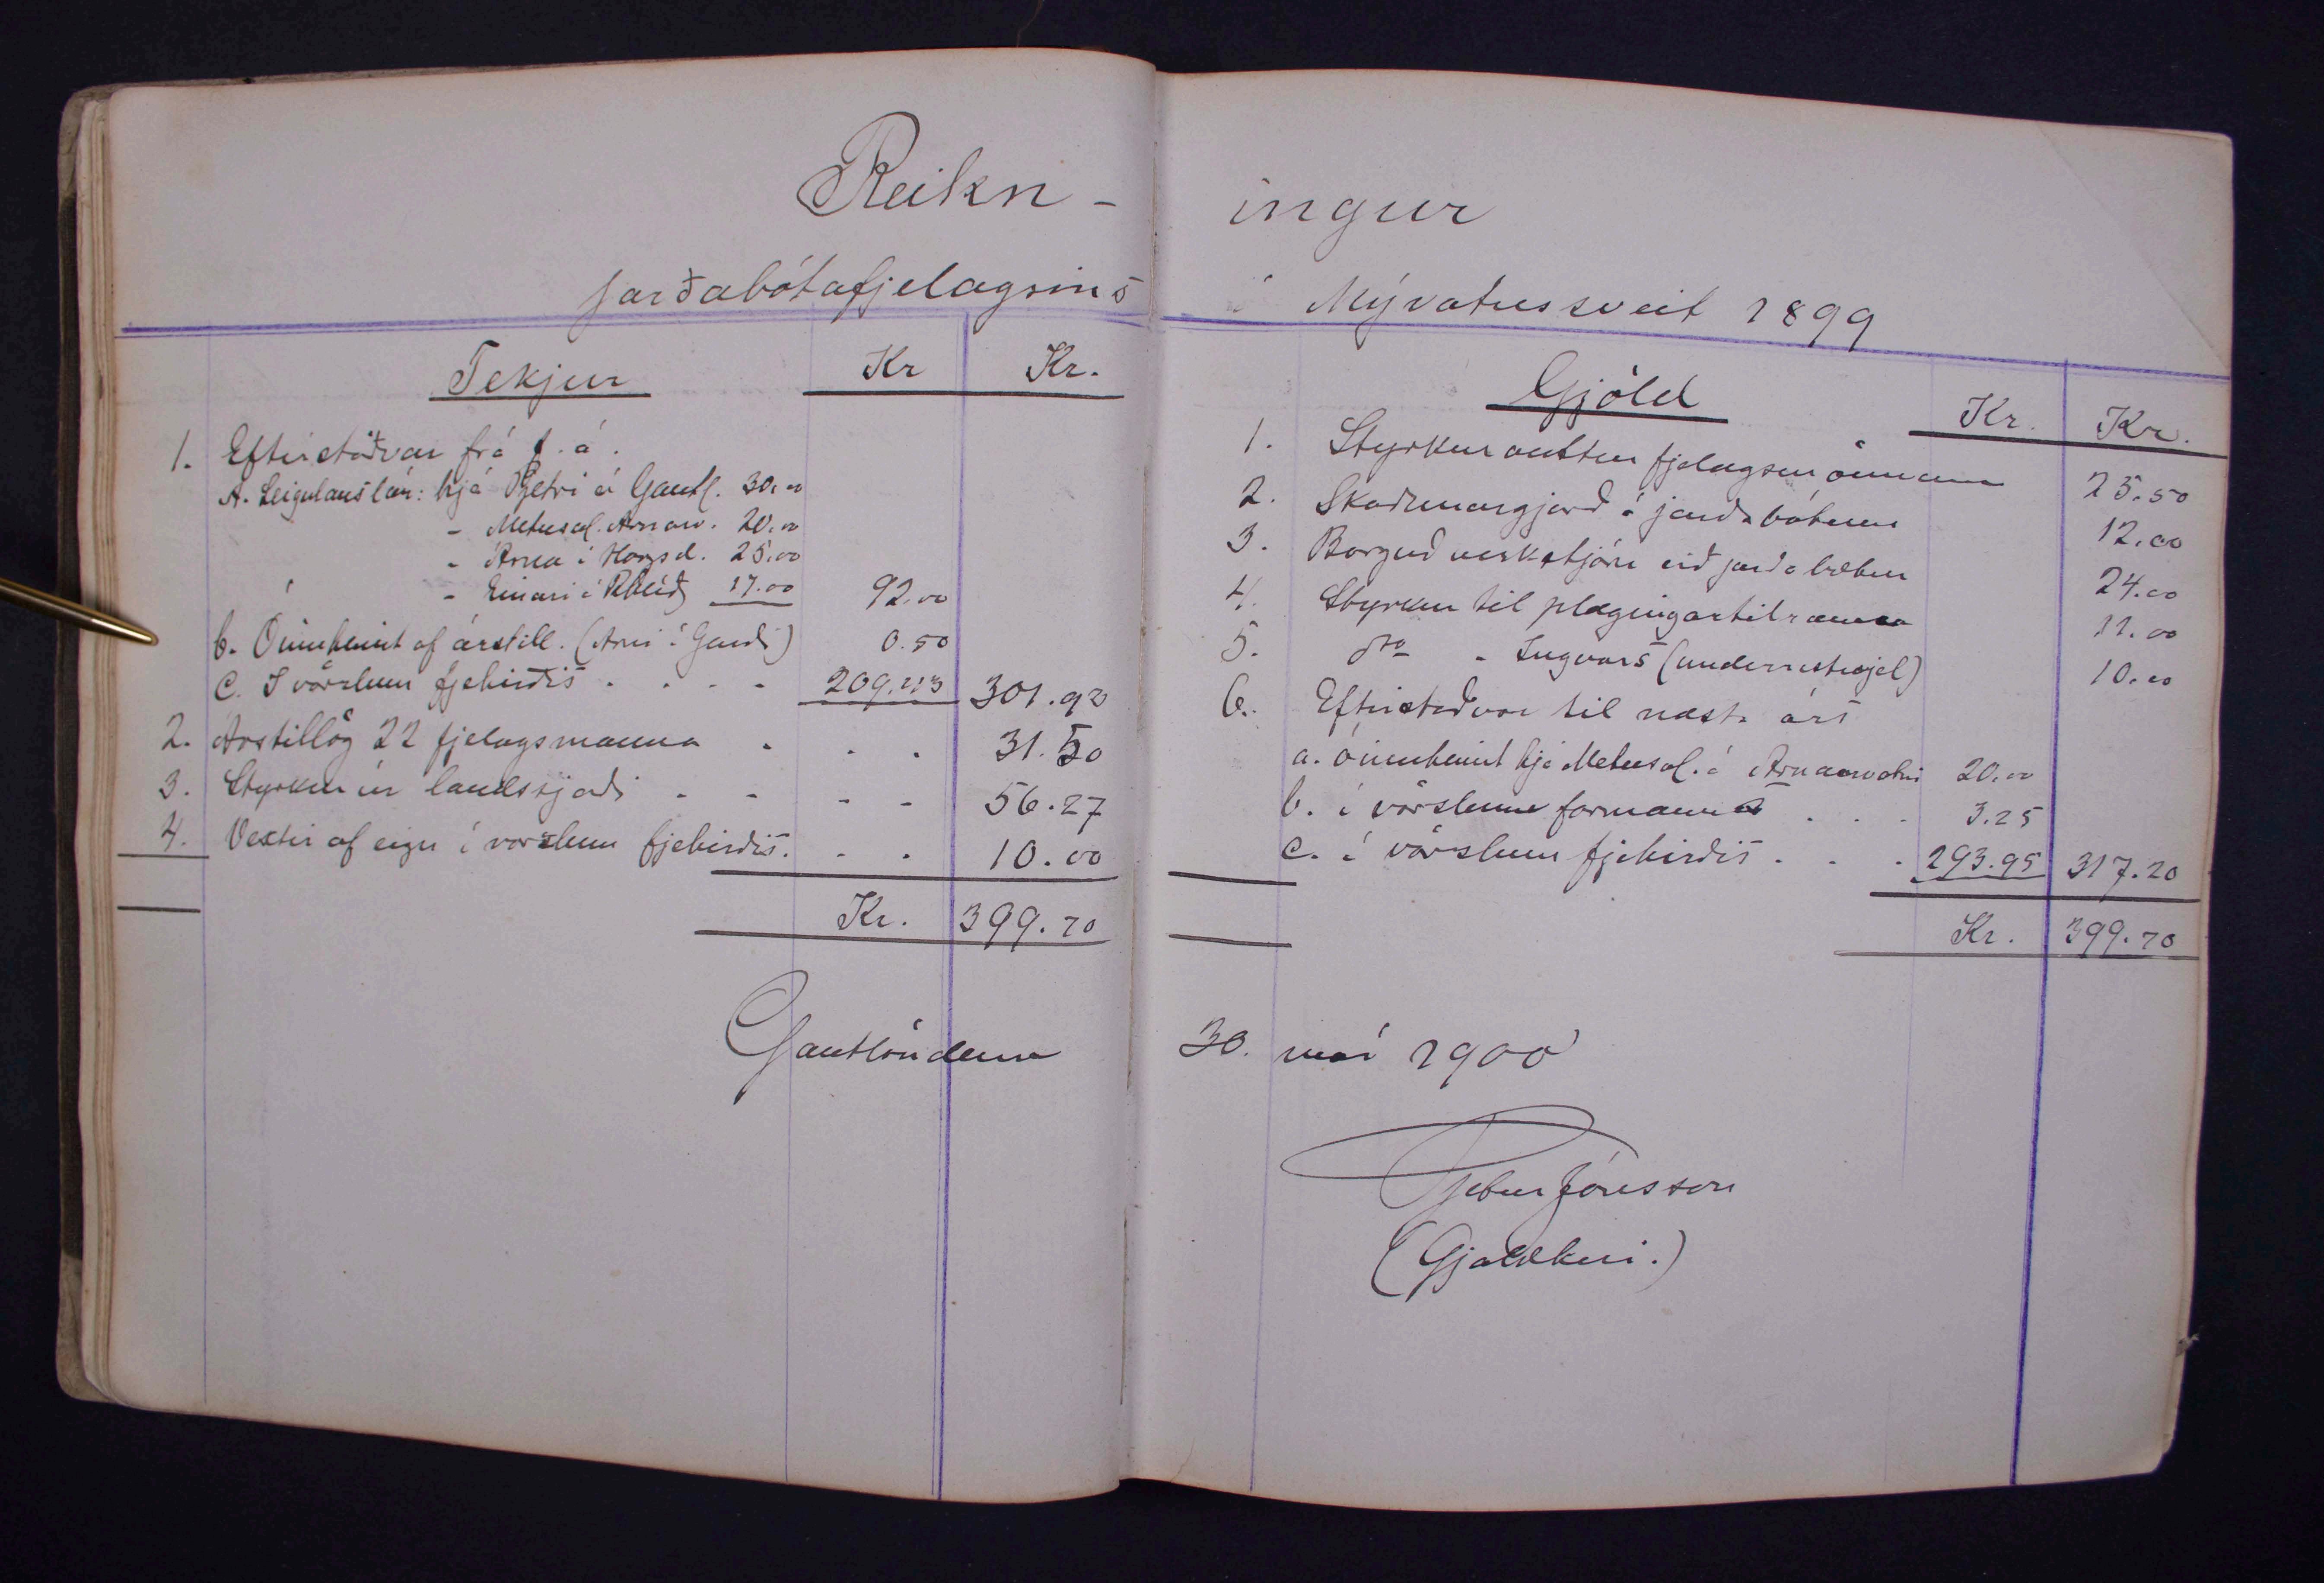 Reikn-
ingur
Jarðabótafjelagsins
í Mývatnssveit 1899
Tekjur Kr Kr.
1. Eftirstöðvar frá f. á.
A. Leigulaus lán: hjá Pjetri á Gautl. 30.00
- Metusal. Arnarv. 20.00
- Árna í 25.00
- Einari í Rhlíð 17.00 92.00
b. Óinnheimt af árstill. (Árni í Garði) 0.50
C. Í vörslum fjehirðis . . . . 209.43 301.93
2. Árstillög 22 fjelagsmanna . . . 31.50
3. Styrkur úr landssjóði - - - - 56.27
4. Vextir af eign í vörslum fjehirðis. . . 10.00
Kr. 399.70
Gautlöndum
Gjöld Kr. Kr.
1. Styrkur fjelagsmönnum 25.50
2. Skoðunargjörð á jarðabótum 12.00
3. Borguð verkstjórn við jarðabætur 24.00
4. Styrkur til plægingartilrauna 11.00
5. do - Ingvars 10.00
6. Eftirstöðvar til næsta árs
a. óinnheimt hjá Metusal. á Arnarvatni 20.00
b. í vörslum formanns . . . 3.25
c. í vörslum fjehirðis . . . 293.95 317.20
Kr. 399.70
30. maí 1900
Pjetur Jónsson
(Gjaldkeri.)